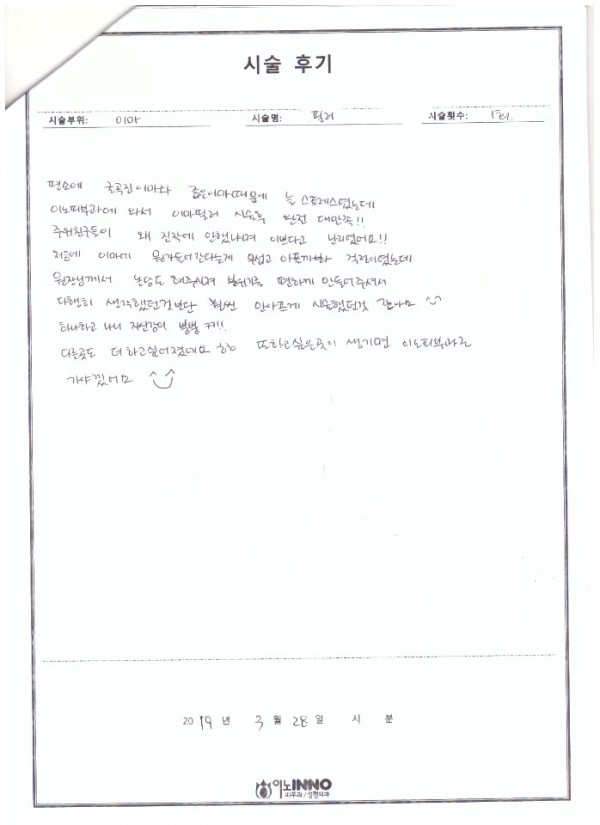 시술 후기
시술부위: 이마 시술명: 필러 시술횟수: 1회
평소에 굴곡진이마와 좁은이마때문에 늘 스트레스였는데
이노피부과에 와서 이마필러 시술후 완전 대만족!!
주위친구들이 왜 진작에 안했냐며 이쁘다고 난리였어요!!
처음에 이마에 뭔가들어간다는게 무섭고 아플까봐 걱정이었는데
원장님께서 농담도 해주시며 분위기를 편하게 만들어주셔서
다행히 생각했던것보단 훨씬 안아프게 시술했던것 같아요
하나하고 나니 자신감이 빵빵 ㅋㅋ!!
다른곳도 더하고싶어졌네요 ㅎㅎ 또하고싶은곳이 생기면 이노피부과로
가야겠어요 ^^
2019년 3월 28일 시 분
이노INNO
피부과/성형외과